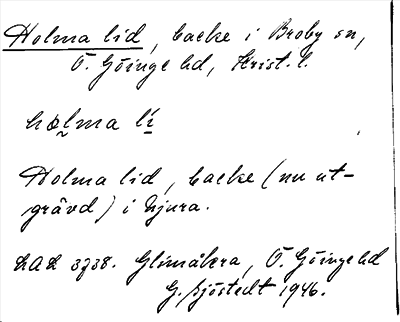 Holma lid, backe i Broby sn,
Ö. Göinge hd, Krist. l.
hɷlma lí
Holma lid, backe (nu ut-
grävd) i Njura.
LAL 3738. Glimåkra, Ö. Göinge hd
G. Sjöstedt 1946.